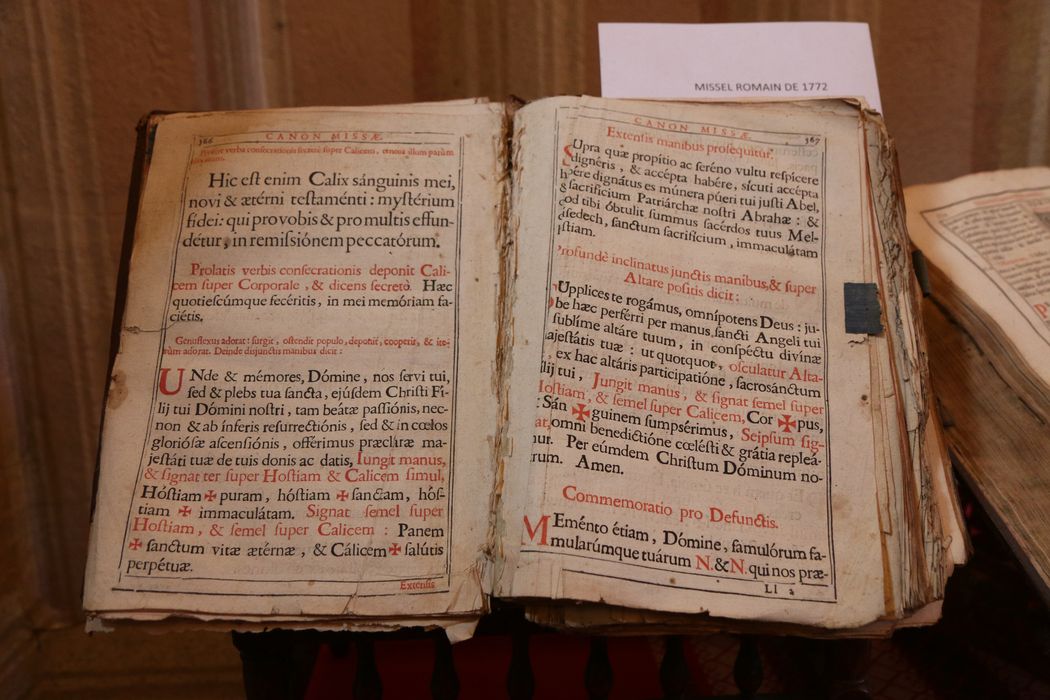 MISSEL ROMAIN DE 1772
366 CANON MISSÆ.
verba consecrationis secretè super Calicem,
Hic est enim Calix sánguinis mei,
novi & ætérni testaménti : mystérium
fidei : qui pro vobis & pro multis effun-
détur, in remissiónem peccatórum.
Prolatis verbis consecrationis deponit Cali-
cem super Corporale, & dicens secretò. Hæc
quotiescúmque fecéritis, in mei memóriam fa-
ciétis.
Genuflexus adorat : surgit, ostendit populo, deponit, cooperit, & ite-
rùm adorat. Deinde disjunctis manibus dicit :
UNde & mémores, Dómine, nos servi tui,
sed & plebs tua sancta, ejúsdem Christi Fí-
lij tui Dómini nostri, tam beátæ passiónis, nec-
non & ab ínferis resurrectiónis, sed & in cœlos
gloriósæ ascensiónis, offérimus præcláræ ma-
jestáti tuæ de tuis donis ac datis, Iungit manus,
& signat ter super Hostiam & Calicem simul,
Hóstiam ✠ puram, hóstiam ✠ sanctam, hós-
tiam ✠ immaculátam. Signat semel super
Hostiam, & semel super Calicem : Panem
✠ sanctum vitæ ætérnæ, & Cálicem ✠ salútis
perpétuæ.
Extensis
CANON MISSÆ. 367
Extensis manibus prosequitur.
SUpra quæ propítio ac seréno vultu respícere
dignéris, & accépta habére, sícuti accépta
habére dignátus es múnera púeri tui justi Abel,
& sacrifícium Patriárchæ nostri Abrahæ : &
quod tibi óbtulit summus sacérdos tuus Mel-
chísedech, sanctum sacrifícium, immaculátam
hóstiam.
Profundè inclinatus junctis manibus, & super
Altare positis dicit :
SUpplices te rogámus, omnípotens Deus : ju-
be hæc perférri per manus sancti Angeli tui
sublíme altáre tuum, in conspéctu divínæ
majestátis tuæ : ut quotquot, osculatur Alta-
, ex hac altáris participatióne, sacrosánctum
Fílij tui, Jungit manus, & signat semel super
Hostiam, & semel super Calicem, Cor ✠ pus,
& Sán ✠ guinem sumpsérimus, Seipsum sig-
nat, omni benedictióne cœlésti & grátia repleá-
mur. Per eúmdem Christum Dóminum no-
strum. Amen.
Commemoratio pro Defunctis.
MEménto étiam, Dómine, famulórum fa-
mularúmque tuárum N. & N. qui nos præ-
Ll 2